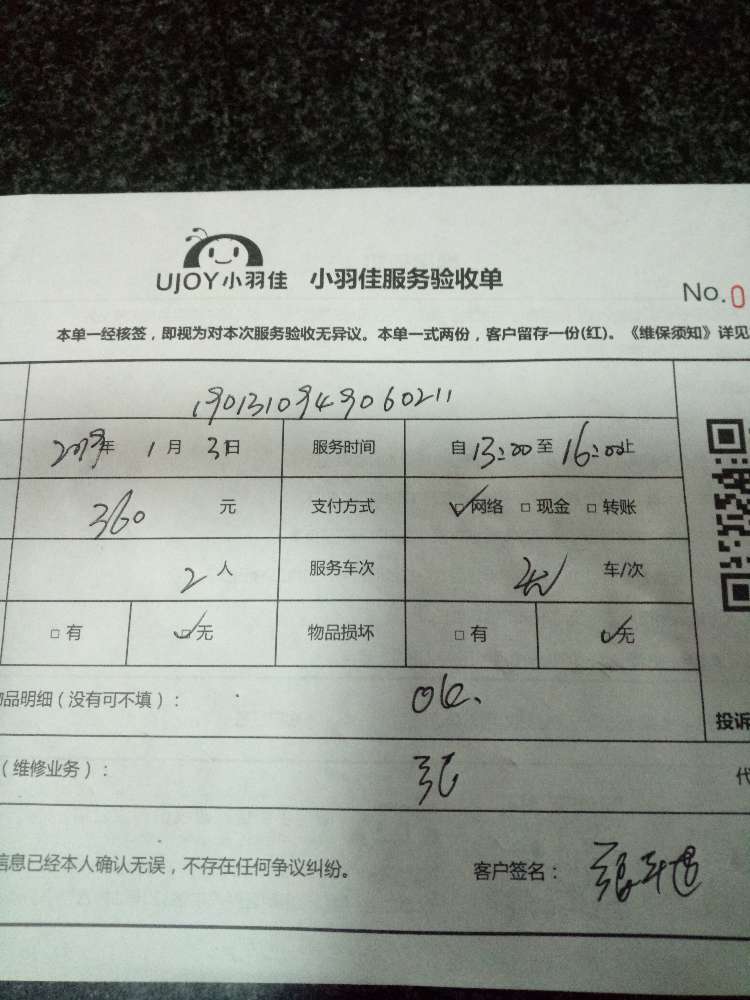 UJOY小羽佳 小羽佳服务验收单
No.0
本单一经核签，即视为对本次服务验收无异议。本单一式两份，客户留存一份(红)。《维保须知》详见
1901310949060211
2019年 1月 31日 服务时间 自13:00至16:00止
360 元 支付方式 网络 现金 转账
2 人 服务车次 车/次
有 无 物品损坏 有 无
物品明细（没有可不填）： OK.
投诉
（维修业务）： 张
代
信息已经本人确认无误，不存在任何争议纠纷。 客户签名： 张